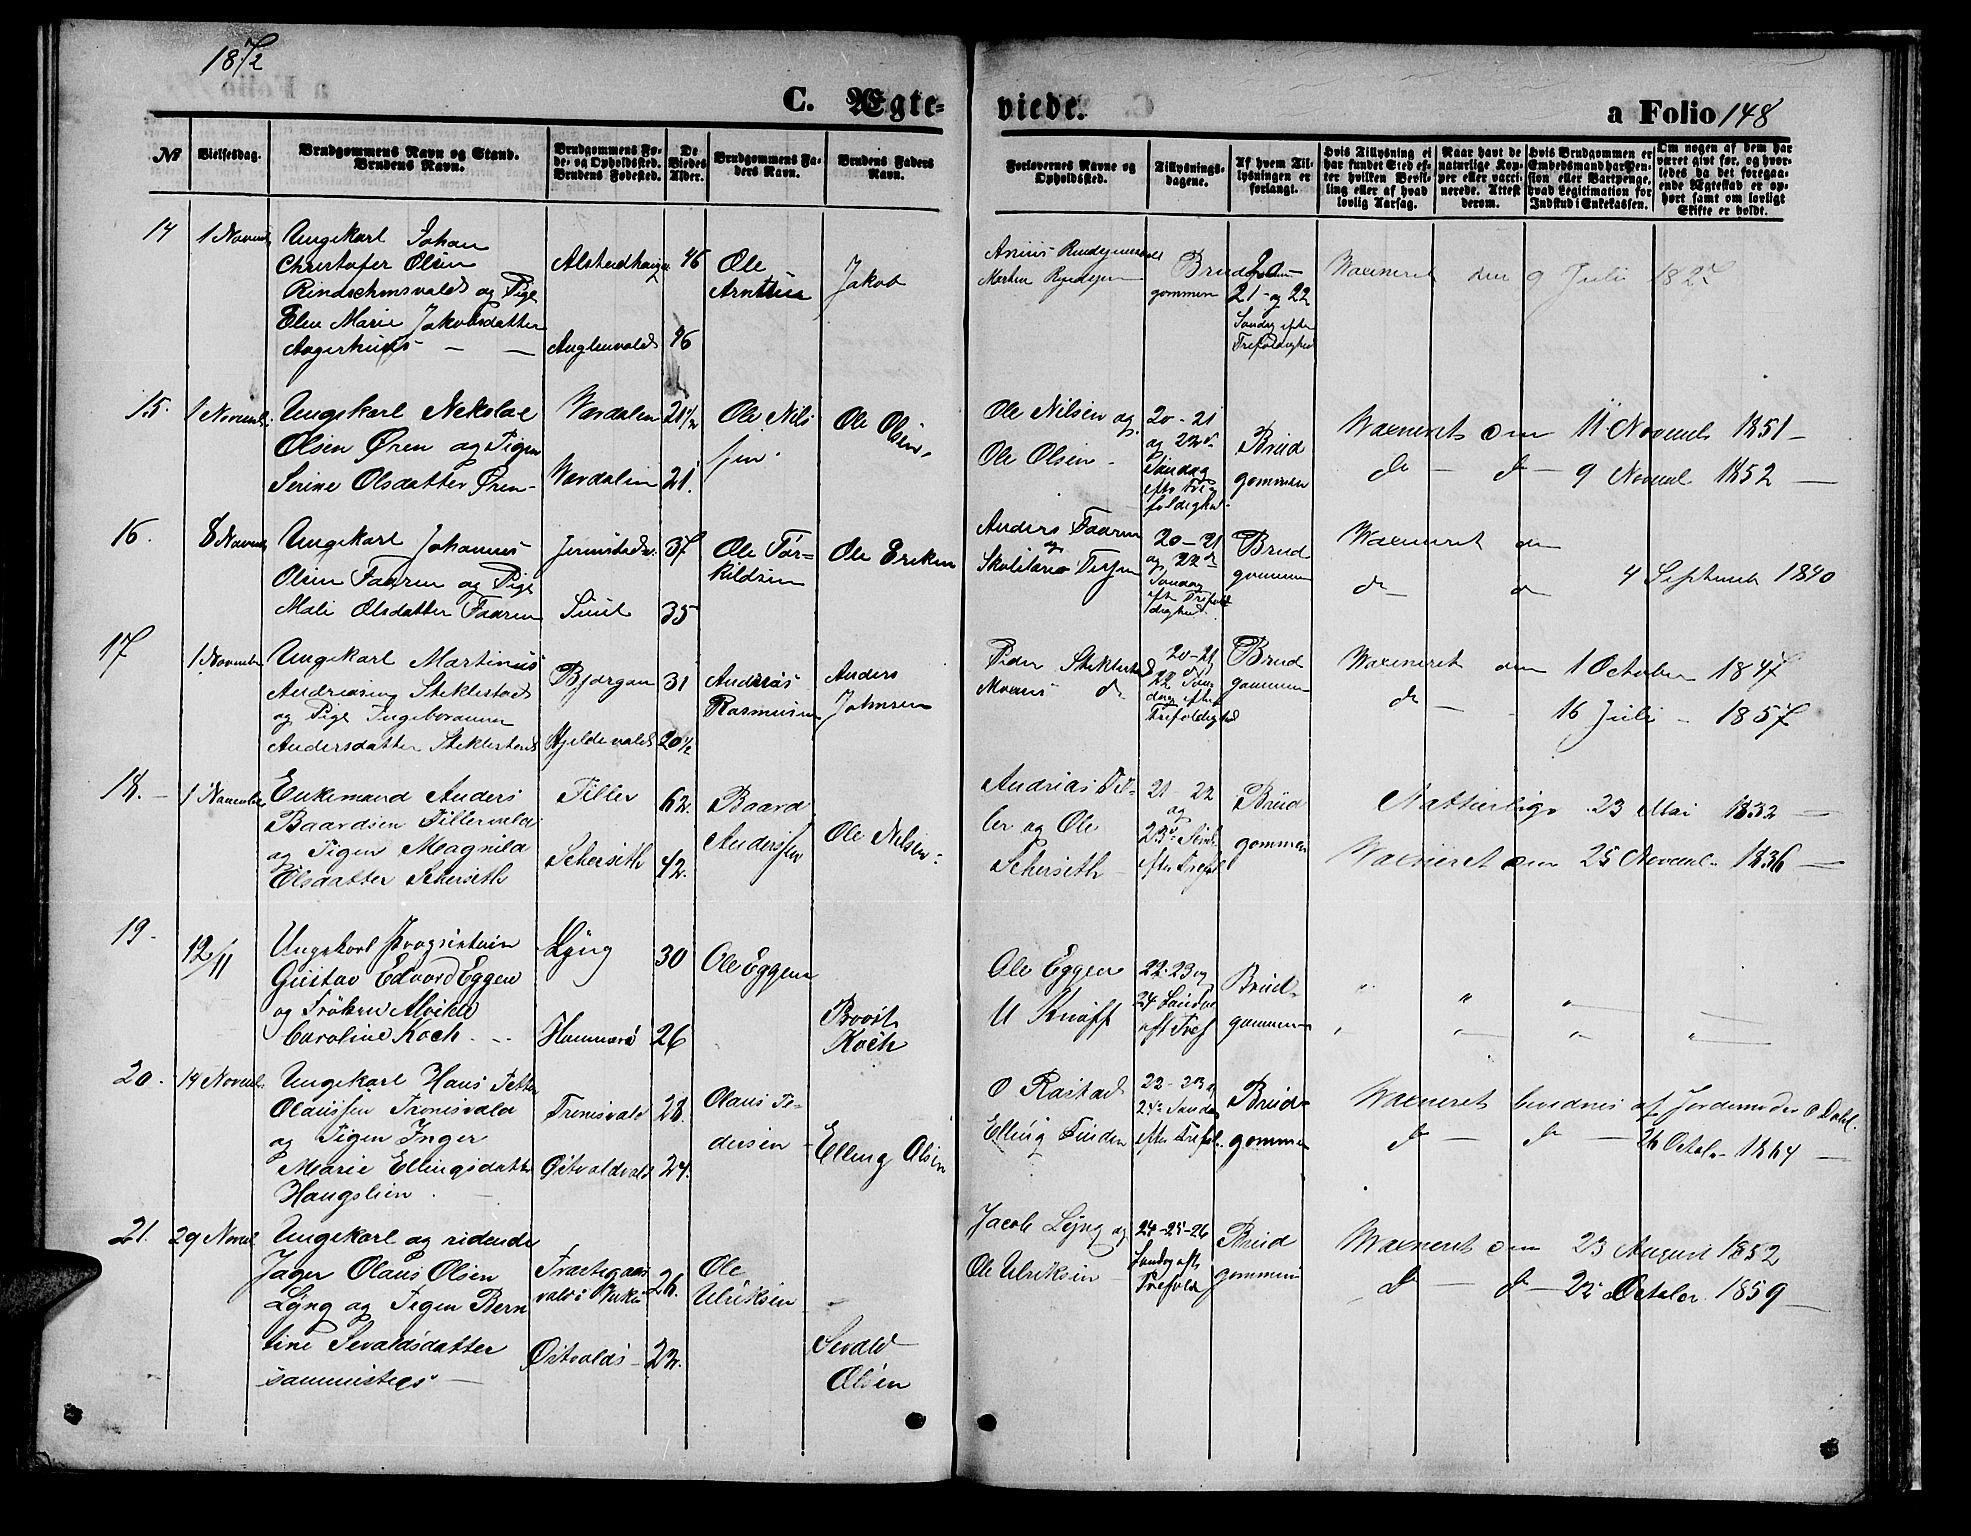 1872
C. Ægte-
viede.
a Folio 148
№
Vielsesdag.
Brudgommens Navn og Stand.
Brudens Navn.
Brudgommens Fø-
de- og Opholdssted.
Brudens Fødested.
De
Viedes
Alder.
Brudgommens Fa-
ders Navn.
Brudens Faders
Navn.
Forlovernes Navne og
Opholdssted.
Tillysnings-
dagene.
Af hvem Til-
lysningen er
forlangt.
Hvis Tillysning ei
har fundet Sted ef-
ter hvilken Bevil-
ling eller af hvad
lovlig Aarsag.
Naar havt de
naturlige Kop-
per eller vacci-
nerede. Attest
derom.
Hvis Brudgommen er
Embedsmand har Pen-
sion eller Vartpenge,
hvad Legitimation for
Indskud i Enkekassen.
Om nogen af dem har
været gift før, og hvor-
ledes da det foregaa-
ende Ægteskab er op-
hørt samt om lovligt
Skifte er holdt.
14
Ungekarl Johan
Christofer Olsen
og Pige
Elen Marie Jakobsdatter
46
Ole
Jakob
46
Brud
gommen
20-
21- og 22
Sondag efter
Trefoldighed
Waxineret den 9 Juli 1827
15. 1 Novemb.
Ungekarl Nekolai
Olsen Øren og Pigen
Serine Olsdatter Øren-
Værdalen 21½
Værdalen 21.
Ole Nils
sen.
Ole Olsen.
Ole Nilsen og
Ole Olsen -
20-21
og 22de
Søndag
efter Tre
foldighed.
Brud
gommen
Waxineret den 11 Novemb 1851-
do - do - 9 Novemb 1852 -
16. 8 Novemb
Ungekarl Johannes
Olsen Faaren og Pige
Mali Olsdatter Faaren
37
35
Ole Tor-
kildsen
Ole Ereksen
Anders Faaren
og
20-21
og 22de
Søndag
eft Trefol
dighed
Brud
gommen
Waxineret den
do - do 4 September 1840
17 1 November
Ungekarl Martinus
Andreasen Steklestad
og Pige Ingeborganna
Andersdatter Steklestad
Bjorgan 31
Hjeldevald 20½
Andreas
Rasmusen
Anders
Johnsen
Peder Steklestad
do
20-21
22 Søn
dag efter
Trefoldighed
Brud
gommen
Waxineret den 1 October 1847
do - 16 Juli - 1857
18. - 1 November
Enkemand Anders
Baardsen Tillervald
og Pigen Magnild
Olsdatter Scherseth
Tiller 62.
Scherseth 42.
Baard
Anderssen
Ole Nilsen.
Andrias Til-
ler og Ole
Scherseth
21-22
og
23de Sønd.
efter Trefol
Brud
gommen
Natturlige 23 Mai 1832 -
Waxineret den 25 Novemb. 1836 -
19. 12/11
Ungekarl
Gustav Edvard Eggen
og Frøken Alvilde
Caroline Koch. - -
Lyng 30
Hammerø 26
Ole Eggen
Koch
Ole Eggen
U Knoff
22-23 og
24 Søndag
eft Tref
Brud-
gommen
20. 14 Novemb.
Ungekarl Hans Petter
Olaussen Tronesvald
og Pigen Inger
Marie Ellingsdatter
Haugslien.
Tronesvald 28.
Østvoldvald 24.
Olaus Pe-
dersen -
Elling Olsen
O Rostad
Elling Tinden
22-23 og
24de Søndag
efter Trefol.
Brud-
gommen
Waxineret Jordemoder O Dahl.
do - do - 26 Octob. 1864 -
21. 29 Novemb
Ungekarl og ridende
Jæger Olaus Olsen
Lyng og Pigen Bern
tine Sevaldsdatter
sammesteds -
26.
Østvolds - 22.
Ole
Ulriksen
Sevald
Olsen
Jacob Lyng og
Ole Ulriksen
24-25-26
Søndag eft
Trefold
Brud
gommen
Waxineret den 23 August 1852
do - do - 22 October 1859 -